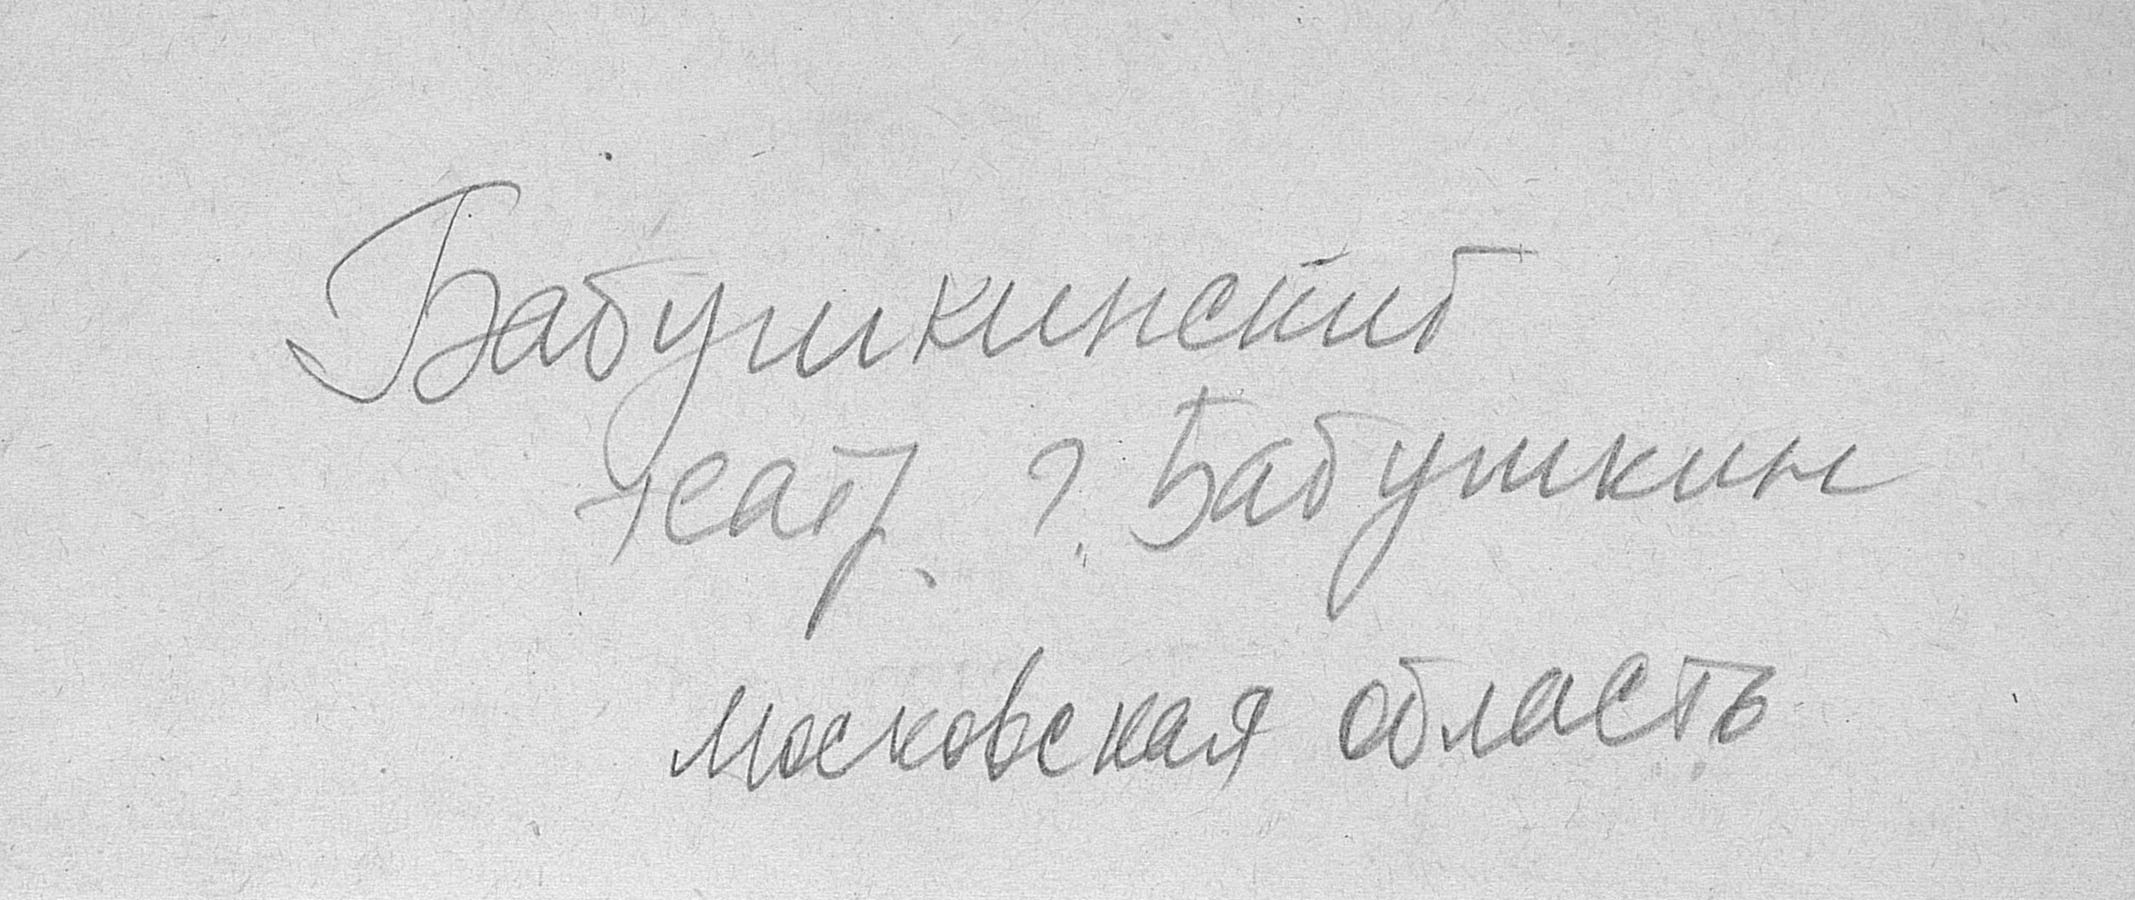 Бабушкинский
театр, г. Бабушкин
Московская область